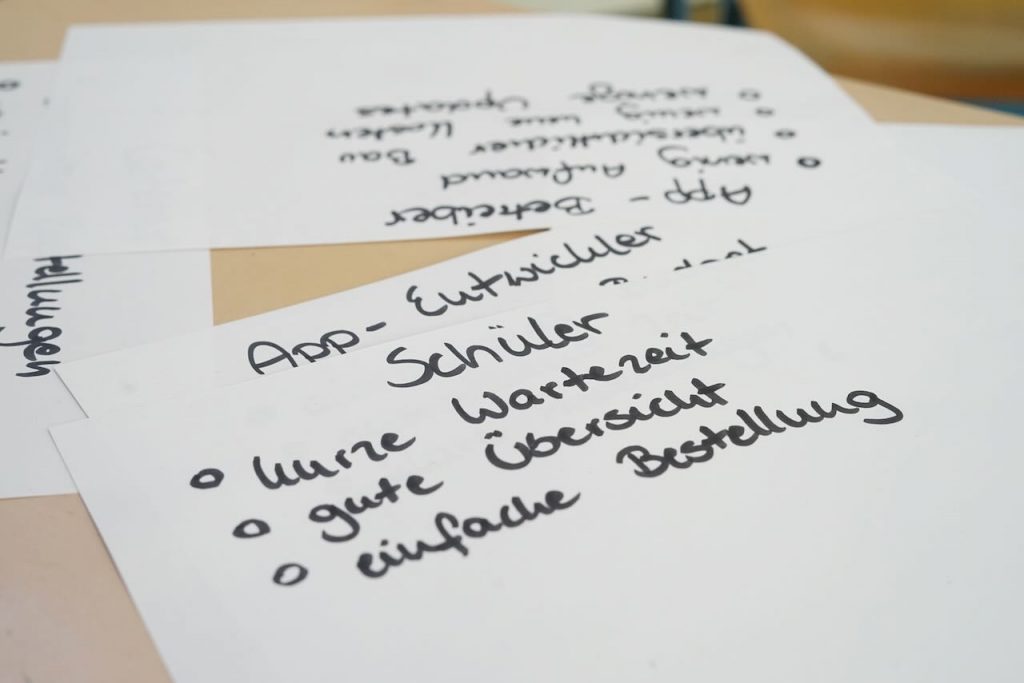 App - Betreiber
• wenig Aufwand
• übersichtlicher Bau
• wenig neue Kosten
• wenige Updates
App - Entwickler
Schüler
• kurze Wartezeit
• gute Übersicht
• einfache Bestellung
tellungen